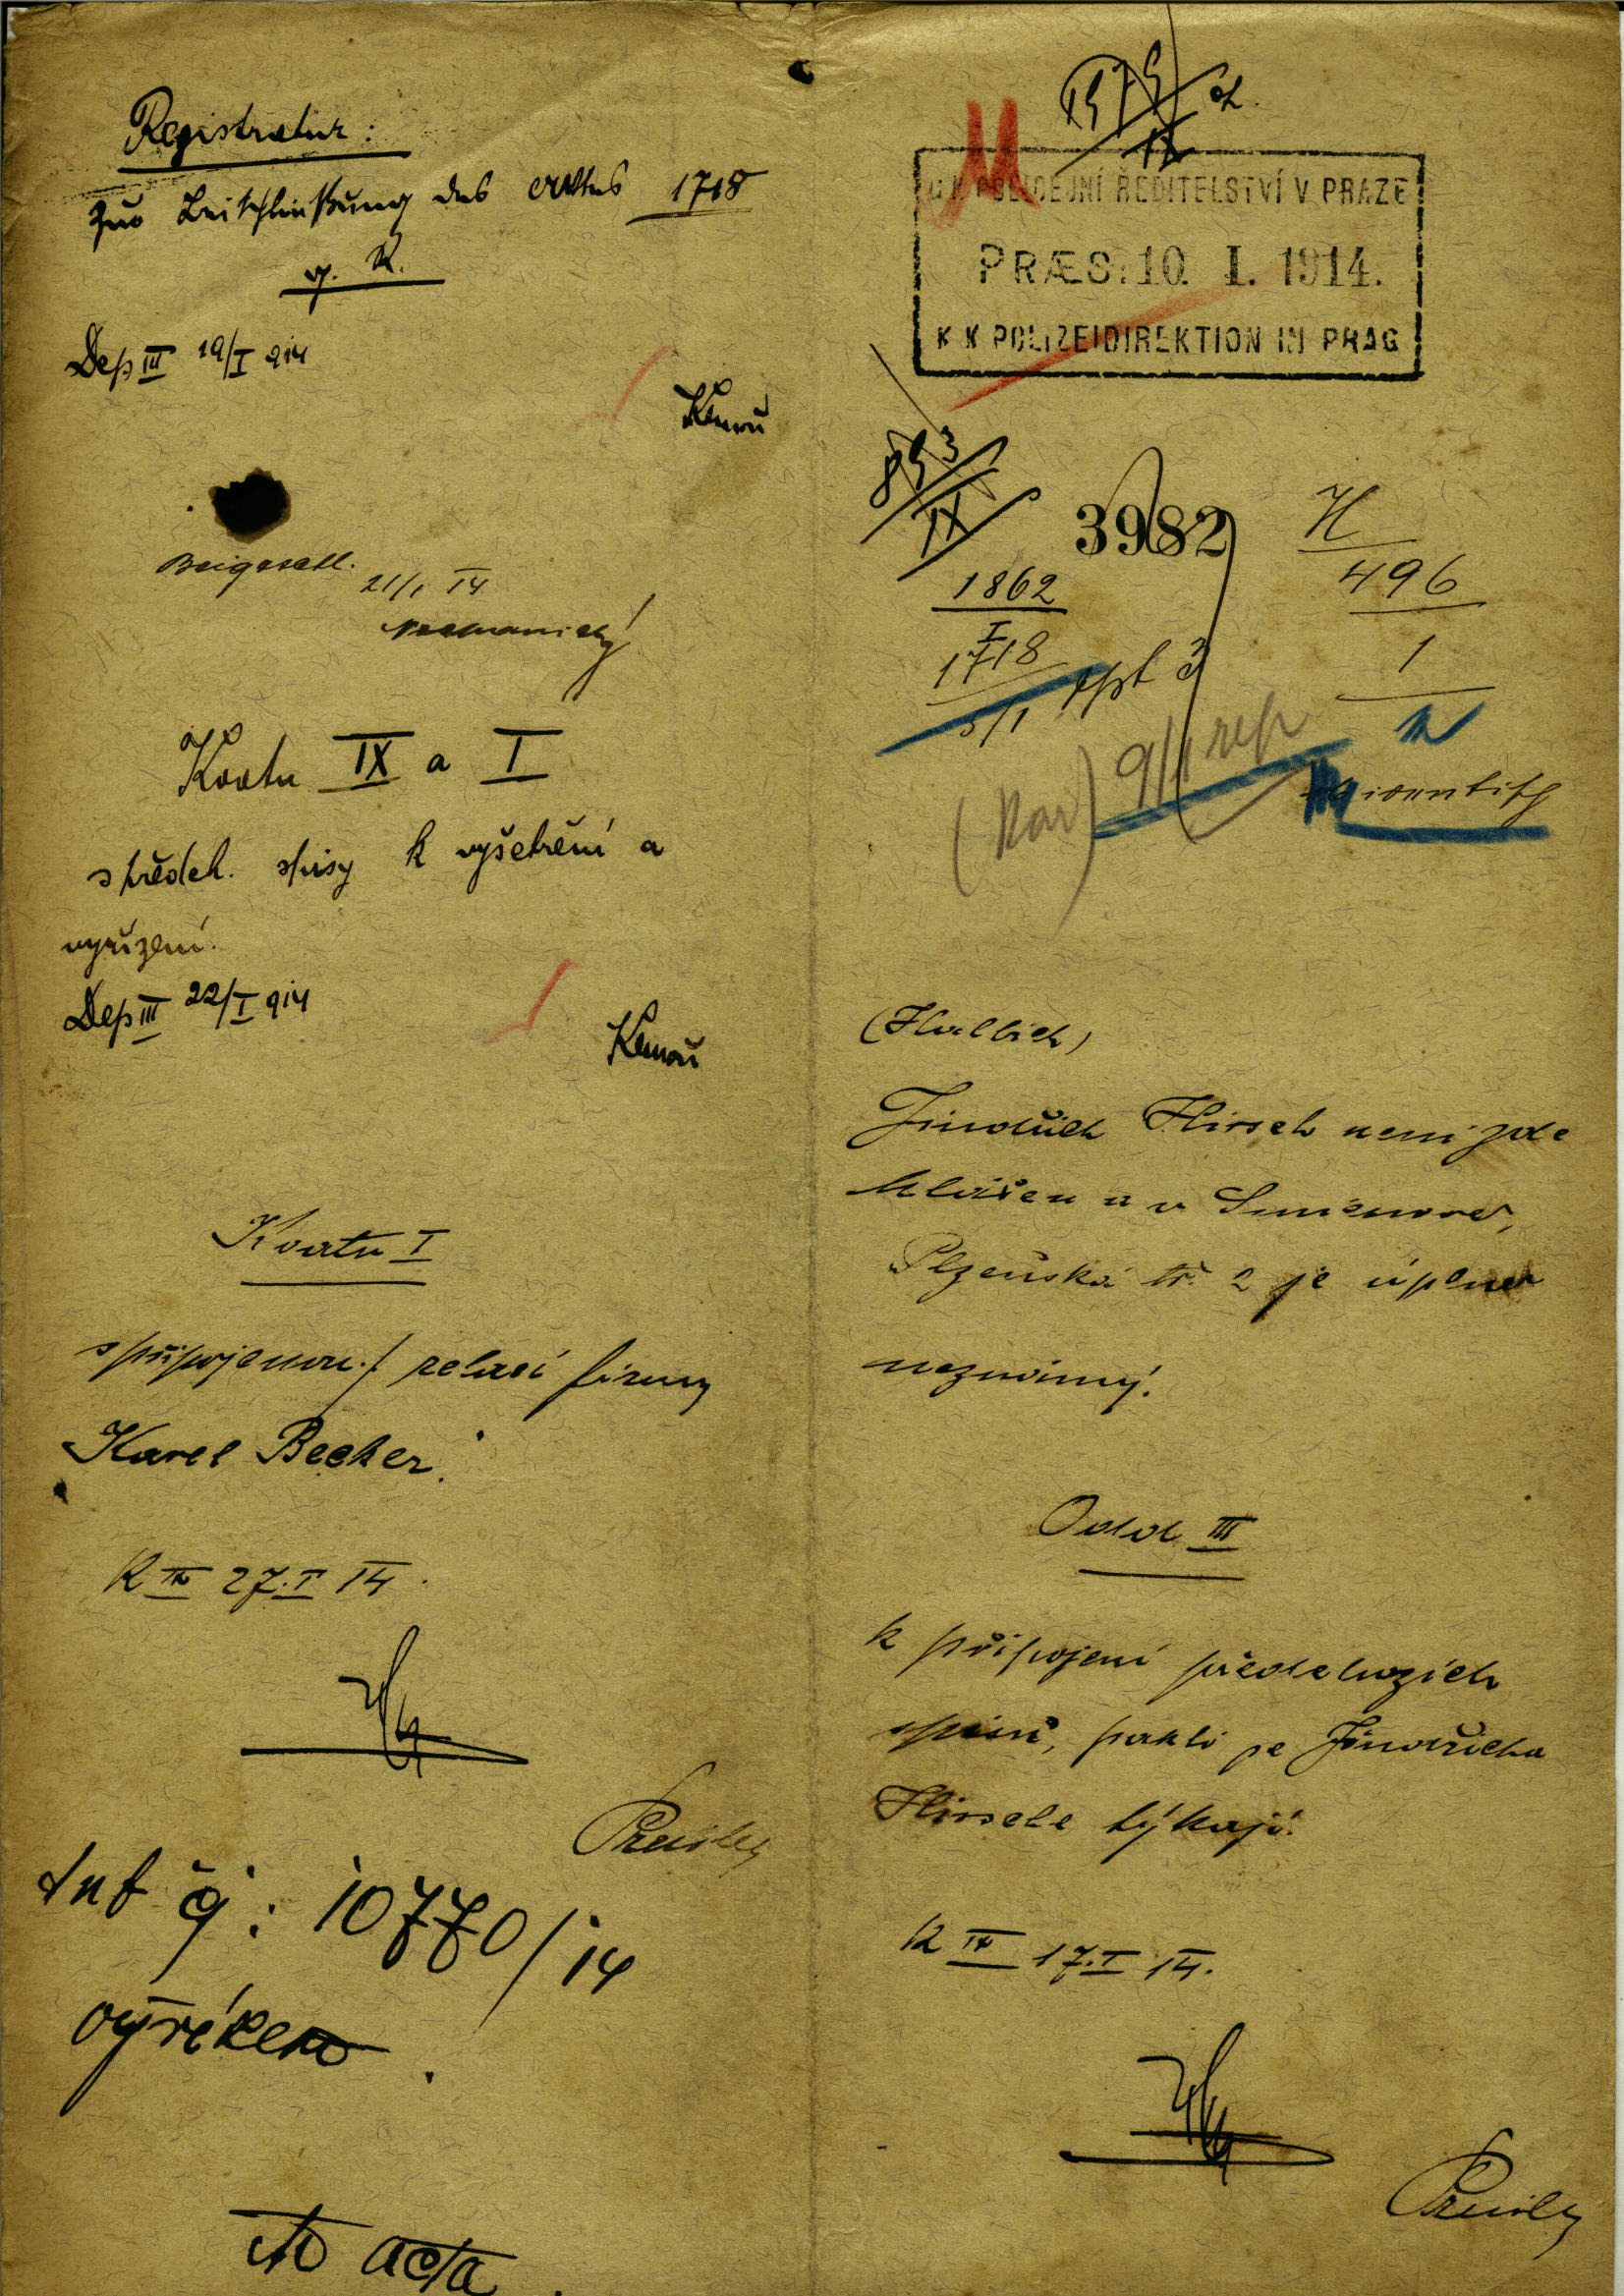 Registratur:
zur Beischließung des Aktes 1718
Dep III 19/I 914
Beigesell.
21/1 14
Kvotu IX a I
s předch. spisy k vyšetření a
vyřízení.
Dep III 22/I 914
Kvotu I
s připojenou ./ relací firmy
Karel Becker.
K IX 27.I 14.
č: 10770/14
výřízeno.
Ad acta
C.K. POLICEJNÍ ŘEDITELSTVÍ V PRAZE
PRÆS: 10. I. 1914.
K K POLIZEIDIREKTION IN PRAG
853
IX
3982
H
496
1
1862
I
1718
5/1
9/1 rep
identisch
Jindřich Hirsch není zde
hlášen a v Smíchově,
Plzeňská tř. 2 je úplně
neznámý.
Odd III
k připojení předchozích
spisů, pakli se Jindřicha
Hirsche týkají.
K IX 17.I 14.